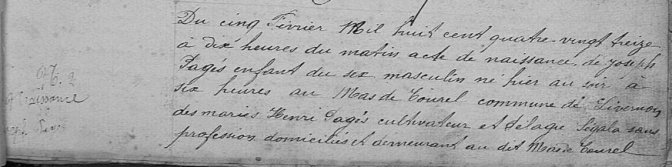 Du cinq Février Mil huit cent quatre-vingt treize
à dix heures du matin acte de naissance, de Joseph
Pagés enfant du sex masculin né hier au soir à
six heures au Mas de Tourel commune de Livernon
des mariés Henri Pagés cultivateur et Pélagie Ségala sans
profession domiciliés et demeurant au dit Mas de Tourel
N. 2
Naissance